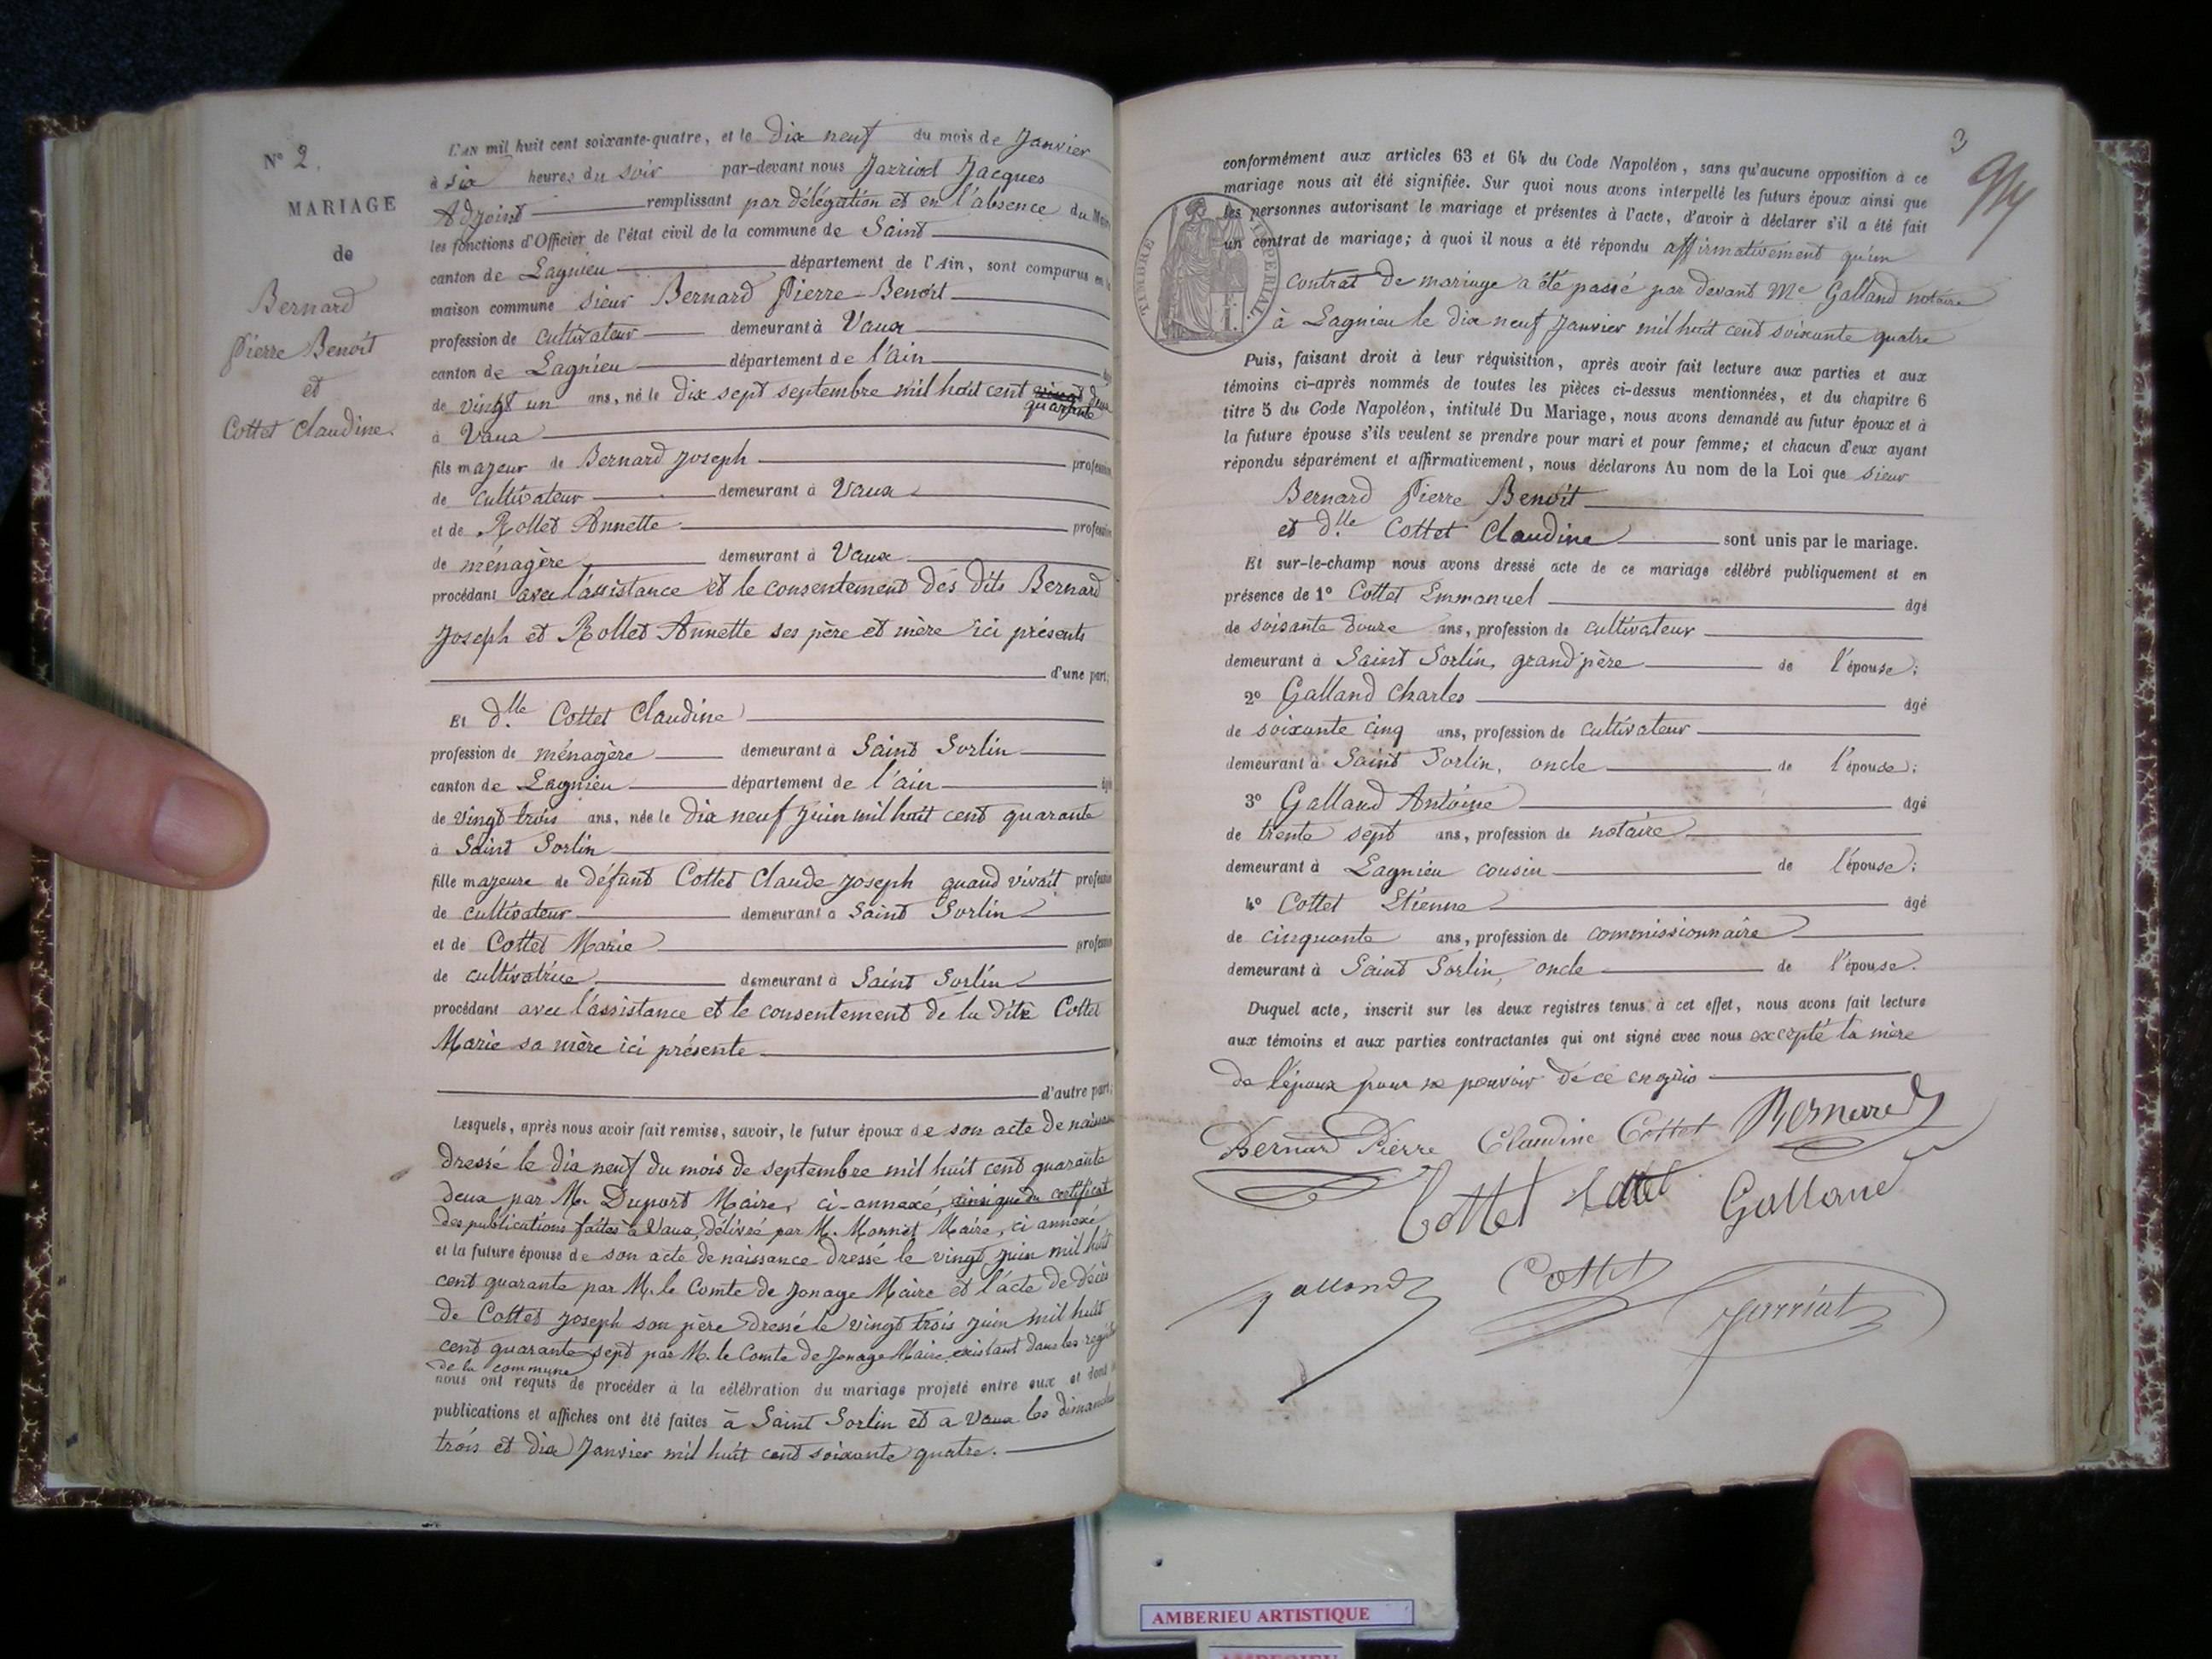 N° 2.
MARIAGE
de
Bernard
Pierre Benoit
et
Cottet Claudine.
L'AN mil huit cent soixante-quatre, et le dix neuf du mois de Janvier
à six heures du soir par-devant nous Jarriod Jacques
Adjoint remplissant par délégation et en l'absence du Maire
les fonctions d'Officier de l'état civil de la commune de Saint
canton de Lagnieu département de l'Ain, sont comparus en la
maison commune sieur Bernard Pierre-Benoit
profession de cultivateur demeurant à Vaux
canton de Lagnieu département de l'ain âgé
de vingt un ans, né le dix sept septembre mil huit cent vingt deux
quarante
à Vaux
fils majeur de Bernard Joseph profession
de cultivateur demeurant à Vaux
et de Rollet Annette profession
de ménagère demeurant à Vaux
procédant avec l'assistance et le consentement des dits Bernard
Joseph et Rollet Annette ses père et mère ici présents
d'une part;
Et dlle Cottet Claudine
profession de ménagère demeurant à Saint Sorlin
canton de Lagnieu département de l'ain âgée
de vingt trois ans, née le dix neuf juin mil huit cent quarante
à Saint Sorlin
fille majeure de défunt Cottet Claude Joseph quand vivait profession
de cultivateur demeurant à Saint Sorlin
et de Cottet Marie profession
de cultivatrice demeurant à Saint Sorlin
procédant avec l'assistance et le consentement de la dite Cottet
Marie sa mère ici présente
d'autre part;
Lesquels, après nous avoir fait remise, savoir, le futur époux de son acte de naissance
dressé le dix neuf du mois de septembre mil huit cent quarante
deux par M. Duport Maire, ci-annexé, ainsi que du certificat
des publications faites à Vaux, délivré par M. Monnet Maire, ci annexé
et la future épouse de son acte de naissance dressé le vingt juin mil huit
cent quarante par M. le Comte de Jonage Maire et l'acte de décès
de Cottet Joseph son père dressé le vingt trois juin mil huit
cent quarante sept par M. le Comte de Jonage Maire, existant dans les registres
de la commune
nous ont requis de procéder à la célébration du mariage projeté entre eux et dont les
publications et affiches ont été faites à Saint Sorlin et a Vaux les dimanches
trois et dix Janvier mil huit cent soixante quatre.
3
TIMBRE IMPERIAL
conformément aux articles 63 et 64 du Code Napoléon, sans qu'aucune opposition à ce
mariage nous ait été signifiée. Sur quoi nous avons interpellé les futurs époux ainsi que
les personnes autorisant le mariage et présentes à l'acte, d'avoir à déclarer s'il a été fait
un contrat de mariage; à quoi il nous a été répondu affirmativement qu'un
contrat de mariage a été passé par devant Me Galland notaire
à Lagnieu le dix neuf Janvier mil huit cent soixante quatre
Puis, faisant droit à leur réquisition, après avoir fait lecture aux parties et aux
témoins ci-après nommés de toutes les pièces ci-dessus mentionnées, et du chapitre 6
titre 5 du Code Napoléon, intitulé Du Mariage, nous avons demandé au futur époux et à
la future épouse s'ils veulent se prendre pour mari et pour femme; et chacun d'eux ayant
répondu séparément et affirmativement, nous déclarons Au nom de la Loi que sieur
Bernard Pierre Benoit
et dlle Cottet Claudine sont unis par le mariage.
Et sur-le-champ nous avons dressé acte de ce mariage célébré publiquement et en
présence de 1° Cottet Emmanuel âgé
de soixante douze ans, profession de cultivateur
demeurant à Saint Sorlin, grand'père de l'épouse;
2° Galland Charles âgé
de soixante cinq ans, profession de cultivateur
demeurant à Saint Sorlin, oncle de l'épouse;
3° Galland Antoine âgé
de trente sept ans, profession de notaire
demeurant à Lagnieu cousin de l'épouse;
4° Cottet Etienne âgé
de cinquante ans, profession de commissionnaire
demeurant à Saint Sorlin, oncle de l'épouse.
Duquel acte, inscrit sur les deux registres tenus à cet effet, nous avons fait lecture
aux témoins et aux parties contractantes qui ont signé avec nous excepté la mère
de l'époux pour ne pouvoir de ce enquis
Bernard Pierre Claudine Cottet Bernard
Cottet Cottet Galland
Galland Cottet Jarriat
AMBERIEU ARTISTIQUE
AMBERIEU